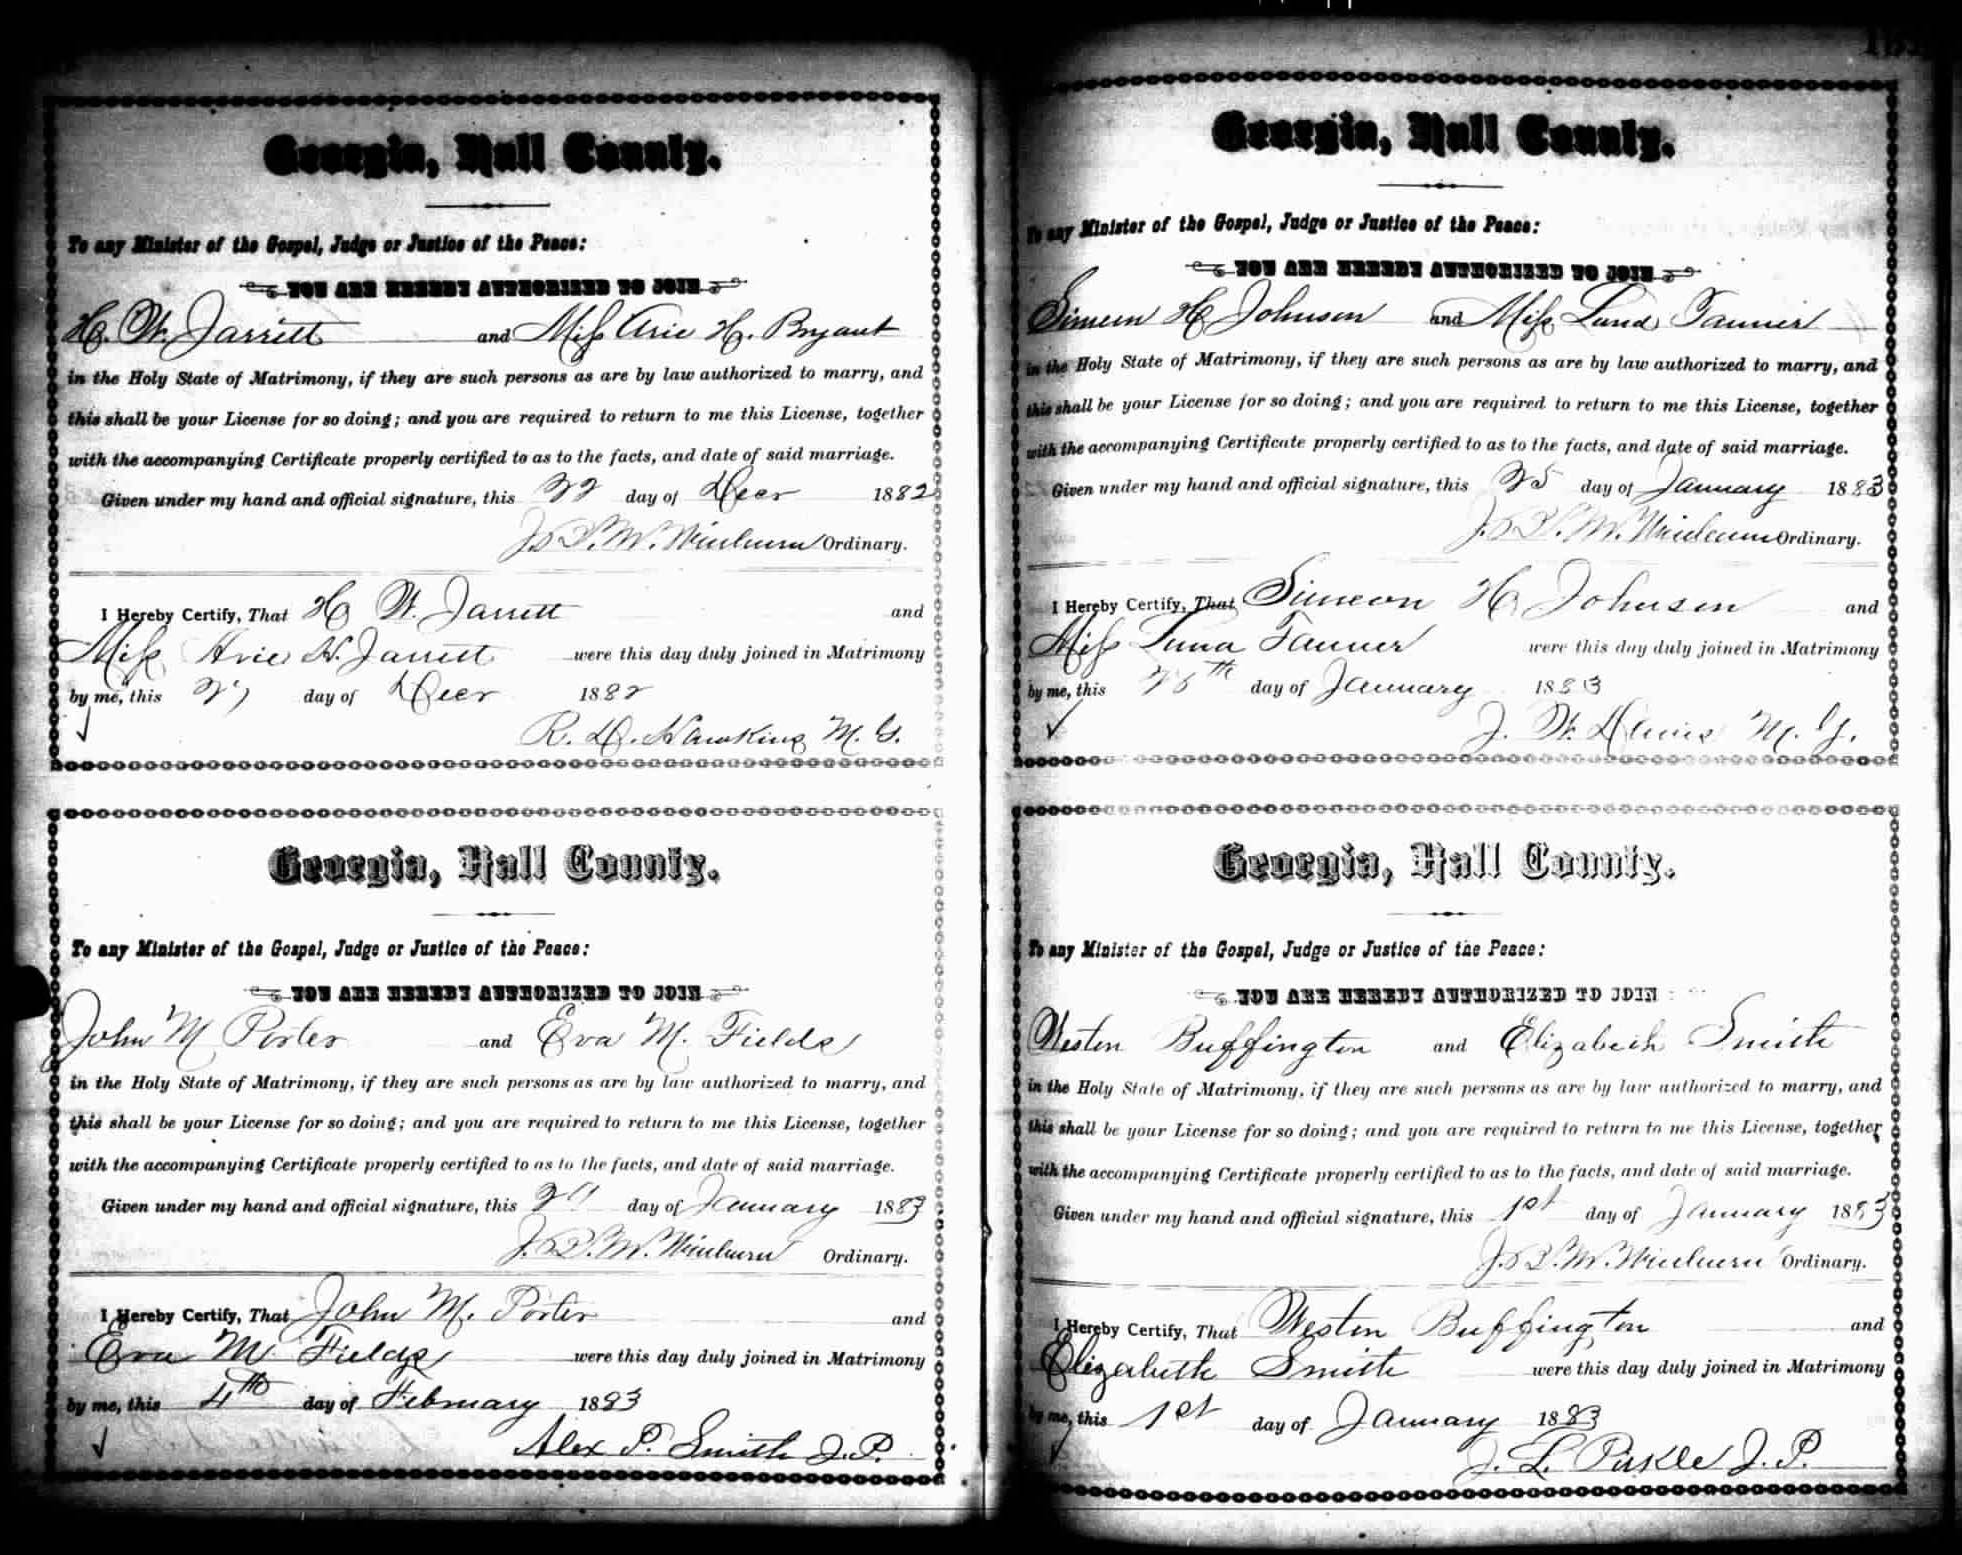 Georgia, Hall County.
To any Minister of the Gospel, Judge or Justice of the Peace:
YOU ARE HEREBY AUTHORIZED TO JOIN
H. W. Jarrett and Miss Arie H. Bryant
in the Holy State of Matrimony, if they are such persons as are by law authorized to marry, and
this shall be your License for so doing; and you are required to return to me this License, together
with the accompanying Certificate properly certified to as to the facts, and date of said marriage.
Given under my hand and official signature, this 22 day of Decr 1882
J. B. M. Winburn Ordinary.
I Hereby Certify, That H W. Jarrett and
Miss Arie H. Jarrett were this day duly joined in Matrimony
by me, this 27 day of Decr 1882
R. D. Hawkins M. G.
Georgia, Hall County.
To any Minister of the Gospel, Judge or Justice of the Peace:
YOU ARE HEREBY AUTHORIZED TO JOIN
John M Porter and Eva M. Fields
in the Holy State of Matrimony, if they are such persons as are by law authorized to marry, and
this shall be your License for so doing; and you are required to return to me this License, together
with the accompanying Certificate properly certified to as to the facts, and date of said marriage.
Given under my hand and official signature, this day of January 1883
J. B. M. Winburn Ordinary.
I Hereby Certify, That John M. Porter and
Eva M Fields were this day duly joined in Matrimony
by me, this 4th day of February 1883
Alex P. Smith J. P.
Georgia, Hall County.
To any Minister of the Gospel, Judge or Justice of the Peace:
YOU ARE HEREBY AUTHORIZED TO JOIN
Simeon H Johnson and Miss Tanner
in the Holy State of Matrimony, if they are such persons as are by law authorized to marry, and
this shall be your License for so doing; and you are required to return to me this License, together
with the accompanying Certificate properly certified to as to the facts, and date of said marriage.
Given under my hand and official signature, this 25 day of January 1883
J. B. M. Winburn Ordinary.
I Hereby Certify, That Simeon H Johnson and
Miss Luna Tanner were this day duly joined in Matrimony
by me, this day of January 1883
J. W. Davis M. G.
Georgia, Hall County.
To any Minister of the Gospel, Judge or Justice of the Peace:
YOU ARE HEREBY AUTHORIZED TO JOIN
Weston Buffington and Elizabeth Smith
in the Holy State of Matrimony, if they are such persons as are by law authorized to marry, and
this shall be your License for so doing; and you are required to return to me this License, together
with the accompanying Certificate properly certified to as to the facts, and date of said marriage.
Given under my hand and official signature, this 1st day of January 1883
J. B. M. Winburn Ordinary.
I Hereby Certify, That Weston Buffington and
Elizabeth Smith were this day duly joined in Matrimony
by me, this 1st day of January 1883
J. L. Pirkle J. P.